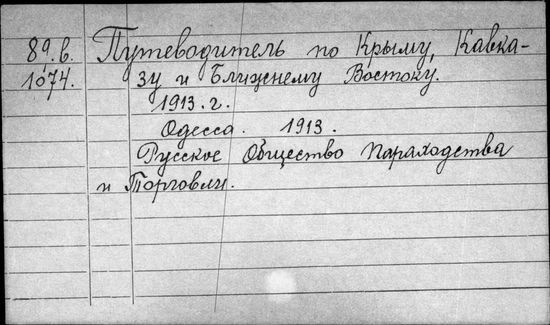 89.в. Путеводитель по Крыму, Кавка-
1074. зу и Ближнему Востоку.
1913.г.
Одесса. 1913.
Русское Общество Параходства
и Торговли.